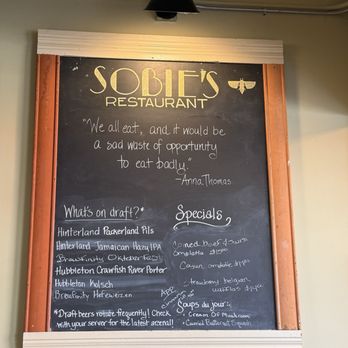 SOBIE'S
RESTAURANT
"We all eat, and it would be
a sad waste of opportunity
to eat badly."
-Anna Thomas
What's on draft?*
Hinterland Packerland Pils
Hinterland Jamaican Hazy IPA
Oktoberfest
Hubbleton Crawfish River Porter
Hubbleton Kolsch
Hefeweizen
*Draft beers rotate frequently! Check
with your server for the latest arsenal!
Specials
Corned beef & swiss
omelette
Cajun omelette
Strawberry belgian
waffles
Soups du jour
• Cream of Mushroom
• Curried Butternut Squash